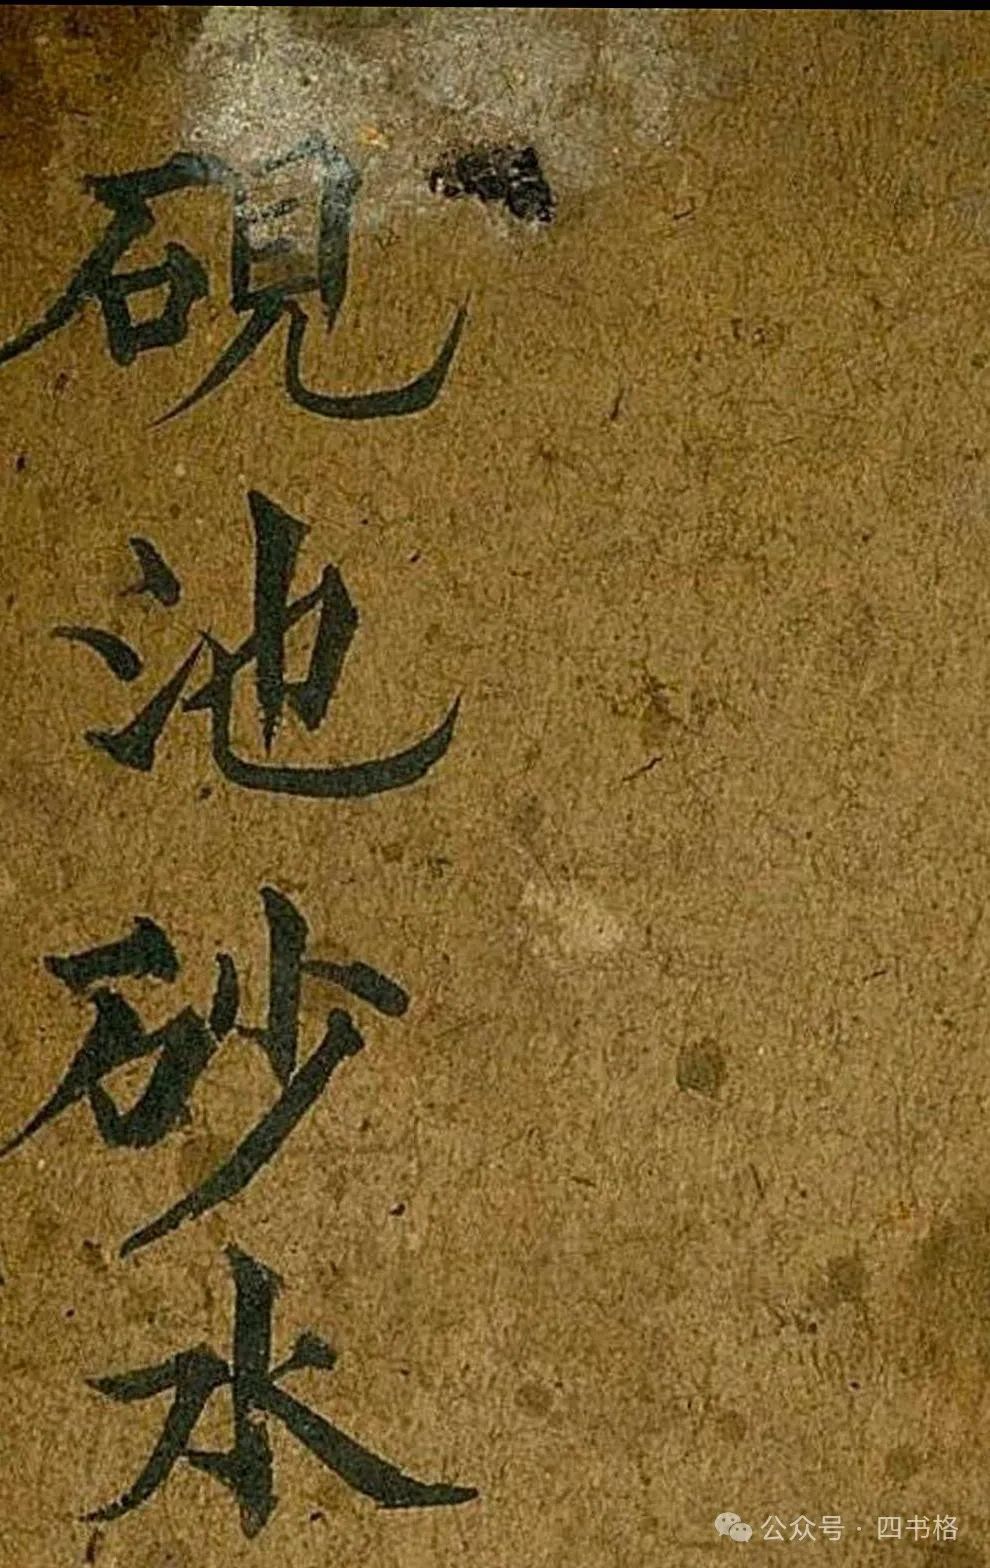 硯池砂水
公众号 · 四书格